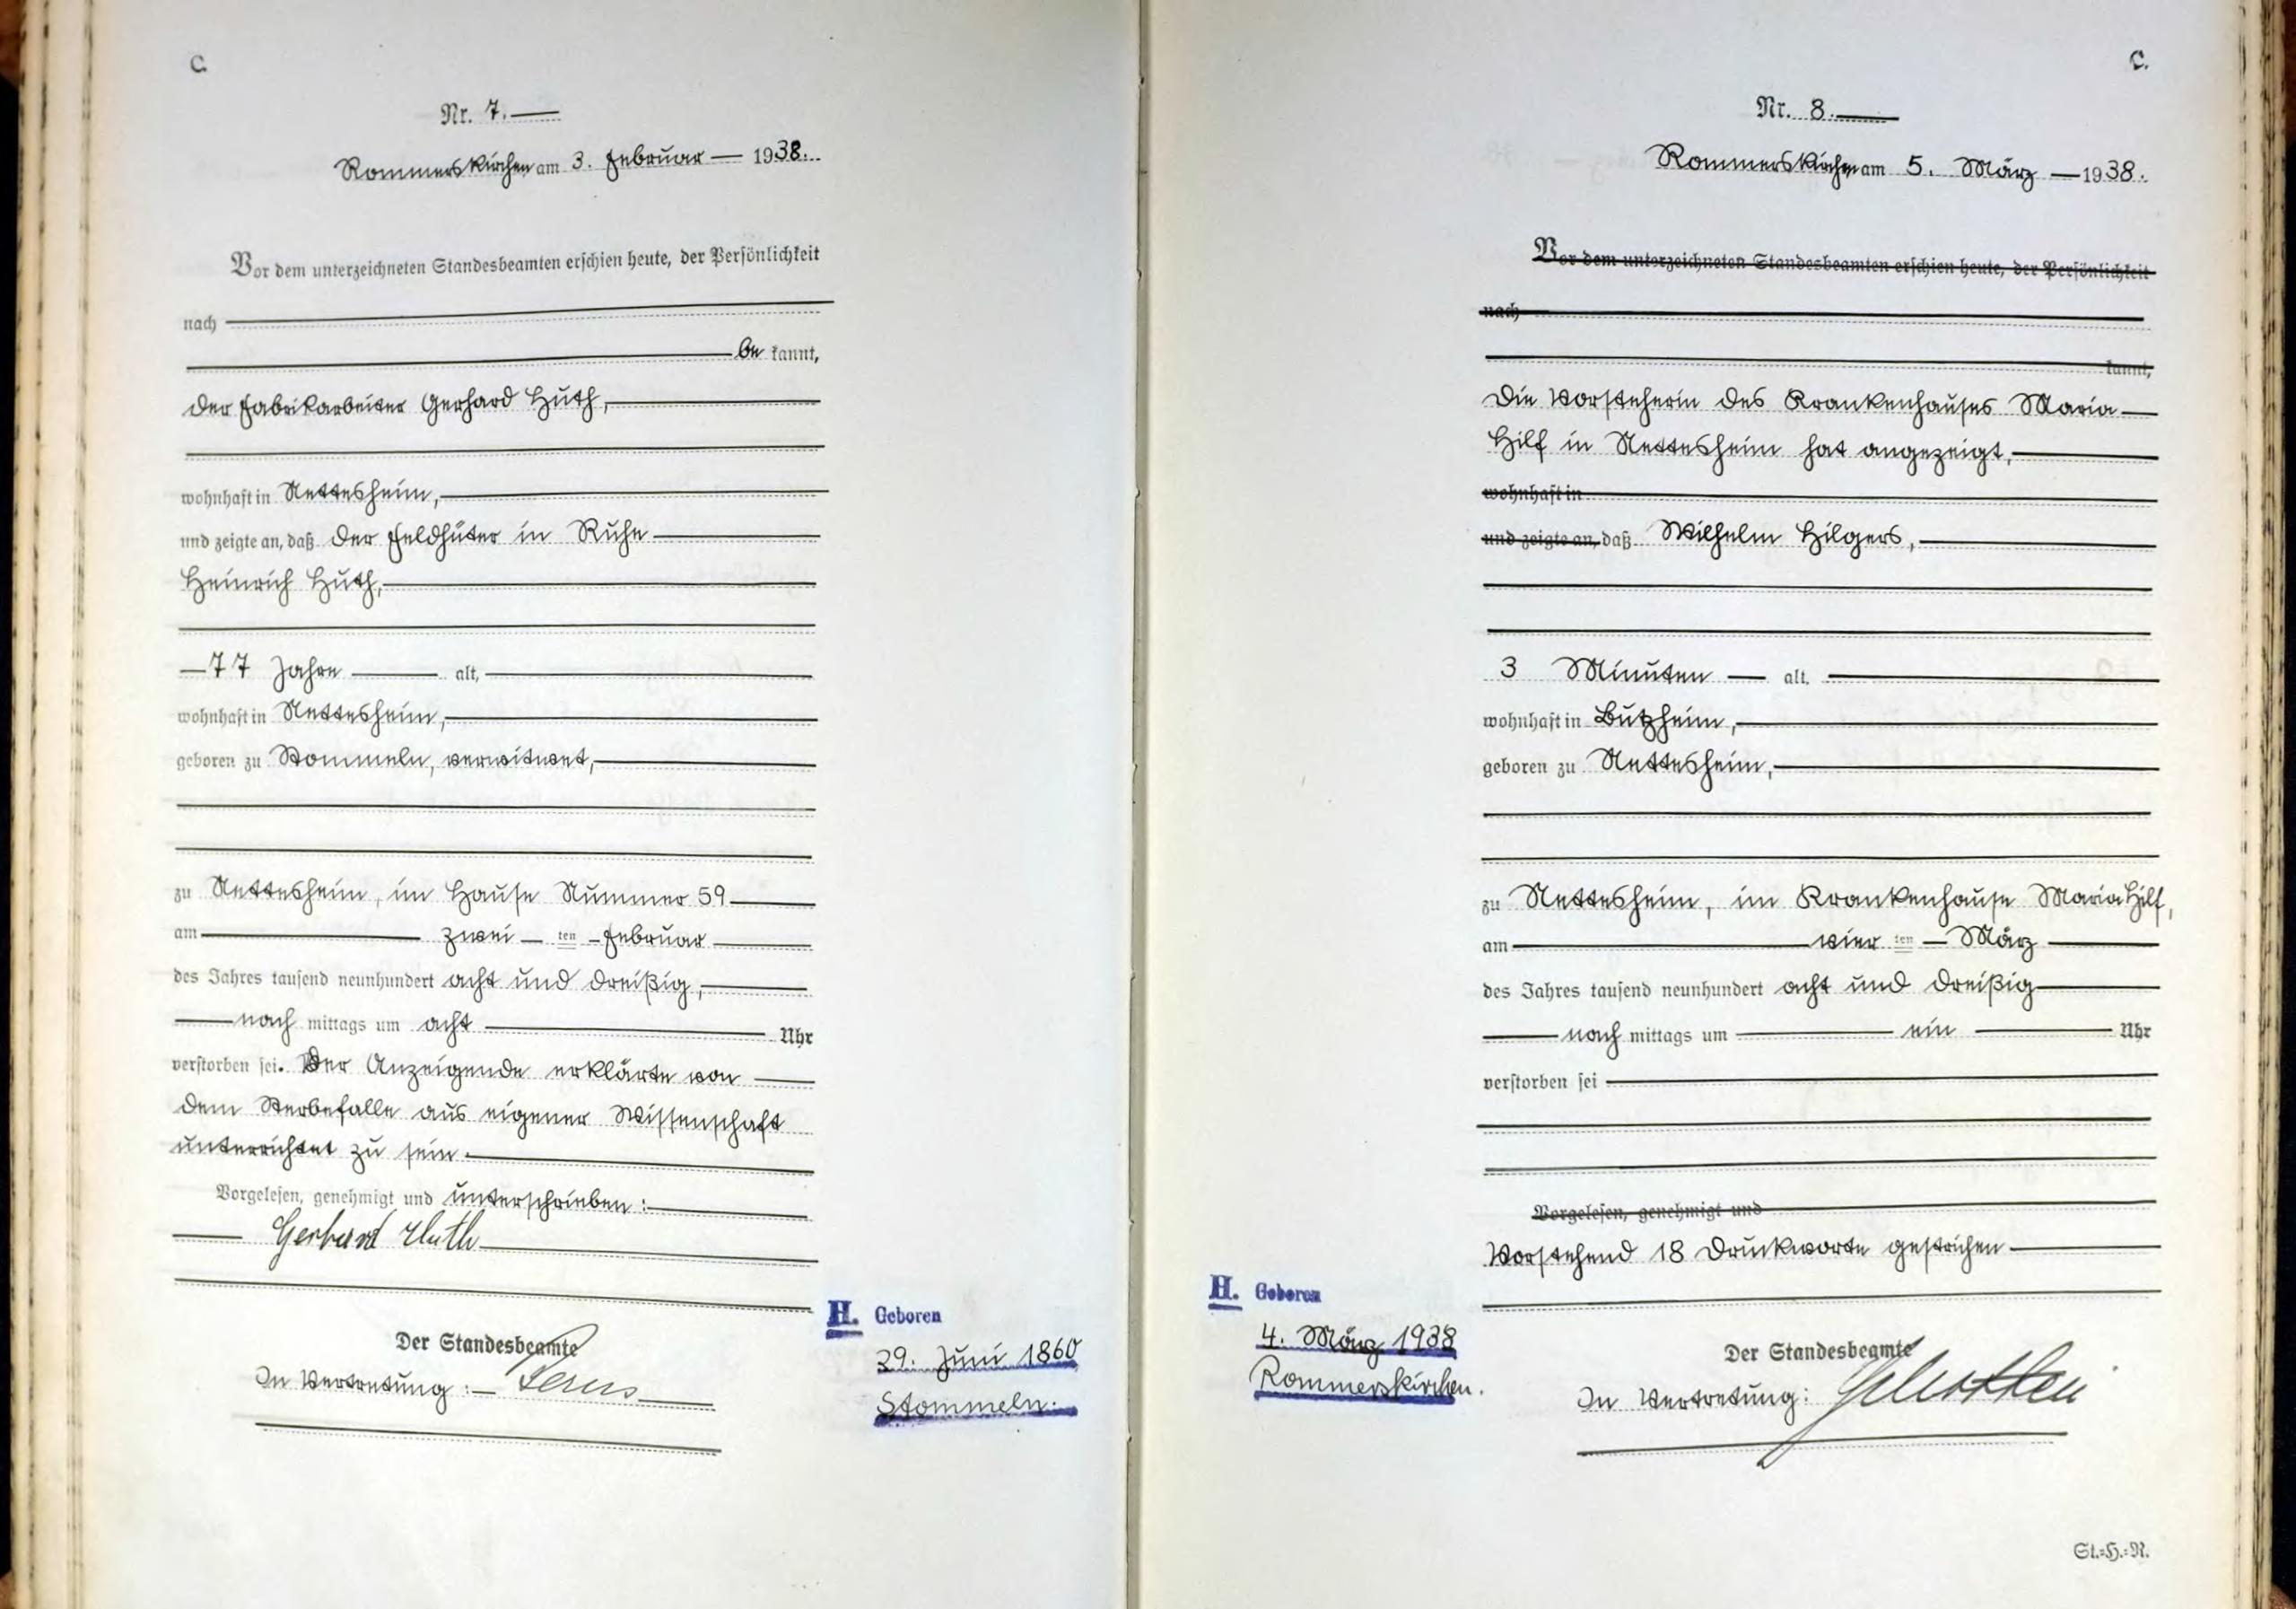 C.
Nr. 7.
Rommerskirchen am 3. Februar 1938.
Vor dem unterzeichneten Standesbeamten erschien heute, der Persönlichkeit
nach
be kannt,
der Fabrikarbeiter Gerhard Huth,
wohnhaft in Nettesheim,
und zeigte an, daß der Feldhüter in Ruhe
Heinrich Huth,
77 Jahre alt,
wohnhaft in Nettesheim,
geboren zu Stommeln, verwitwet,
zu Nettesheim, im Hause Nummer 59
am zwei ten Februar
des Jahres tausend neunhundert acht und dreißig,
nach mittags um acht Uhr
verstorben sei. Der Anzeigende erklärte von
dem Sterbefalle aus eigener Wissenschaft
unterrichtet zu sein.
Vorgelesen, genehmigt und unterschrieben:
Gerhard Huth
Der Standesbeamte
In Vertretung:
H. Geboren
29. Juni 1860
Stommeln.
C.
Nr. 8.
Rommerskirchen am 5. März 1938.
Vor dem unterzeichneten Standesbeamten erschien heute, der Persönlichkeit
nach
kannt,
Die Vorsteherin des Krankenhauses Maria
Hilf in Nettesheim hat angezeigt,
wohnhaft in
und zeigte an, daß Wilhelm Hilgers,
3 Minuten alt,
wohnhaft in Butzheim,
geboren zu Nettesheim,
zu Nettesheim, im Krankenhause Maria Hilf,
am vier ten März
des Jahres tausend neunhundert acht und dreißig
nach mittags um ein Uhr
verstorben sei
Vorgelesen, genehmigt und
Vorstehend 18 Druckworte gestrichen
Der Standesbeamte
In Vertretung:
H. Geboren
4. März 1938
Rommerskirchen.
St.=H.=R.